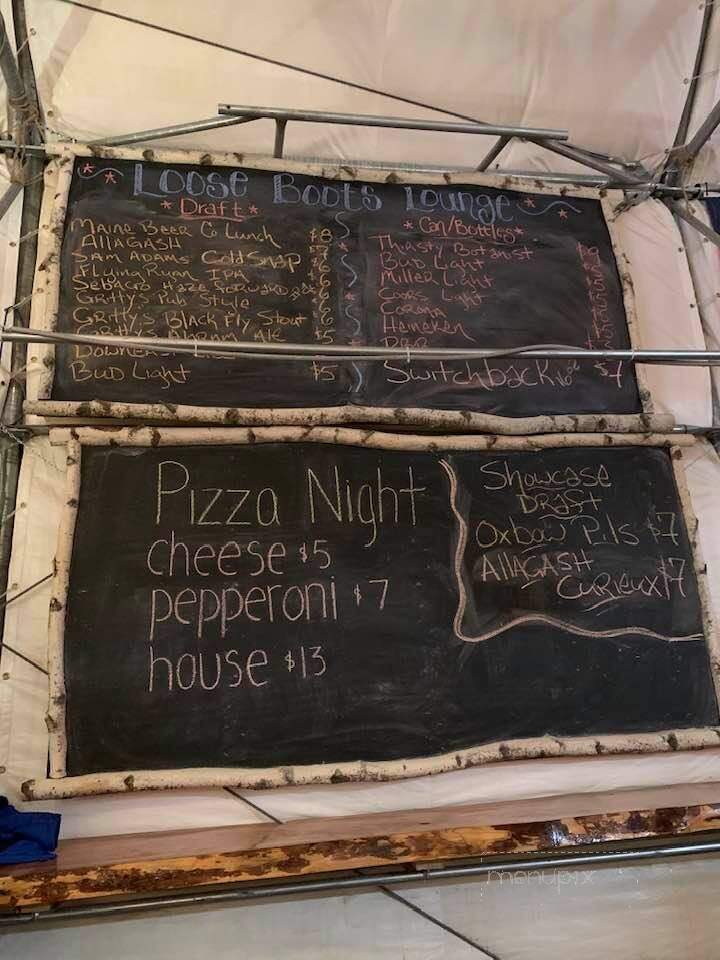 Loose Boots Lounge
* Draft *
Maine Beer Co Lunch $8
ALLAGASH
Sam Adams Cold Snap
Flying
IPA
Sebago
Gritty's Pub Style
Gritty's Black Fly Stout
Ale $5
Bud Light $5
* Can/Bottles *
Thirsty Botanist
Bud Light
Miller Light
Coors Light
Corona
Heineken
PBR
Switchback 16oz $7
Pizza Night
cheese $5
pepperoni $7
house $13
Showcase
Draft
Oxbow Pils $7
ALLAGASH
Curieux $7
menupix